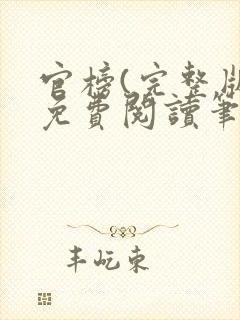 官榜(完整版
免費閱讀筆
丰屹東